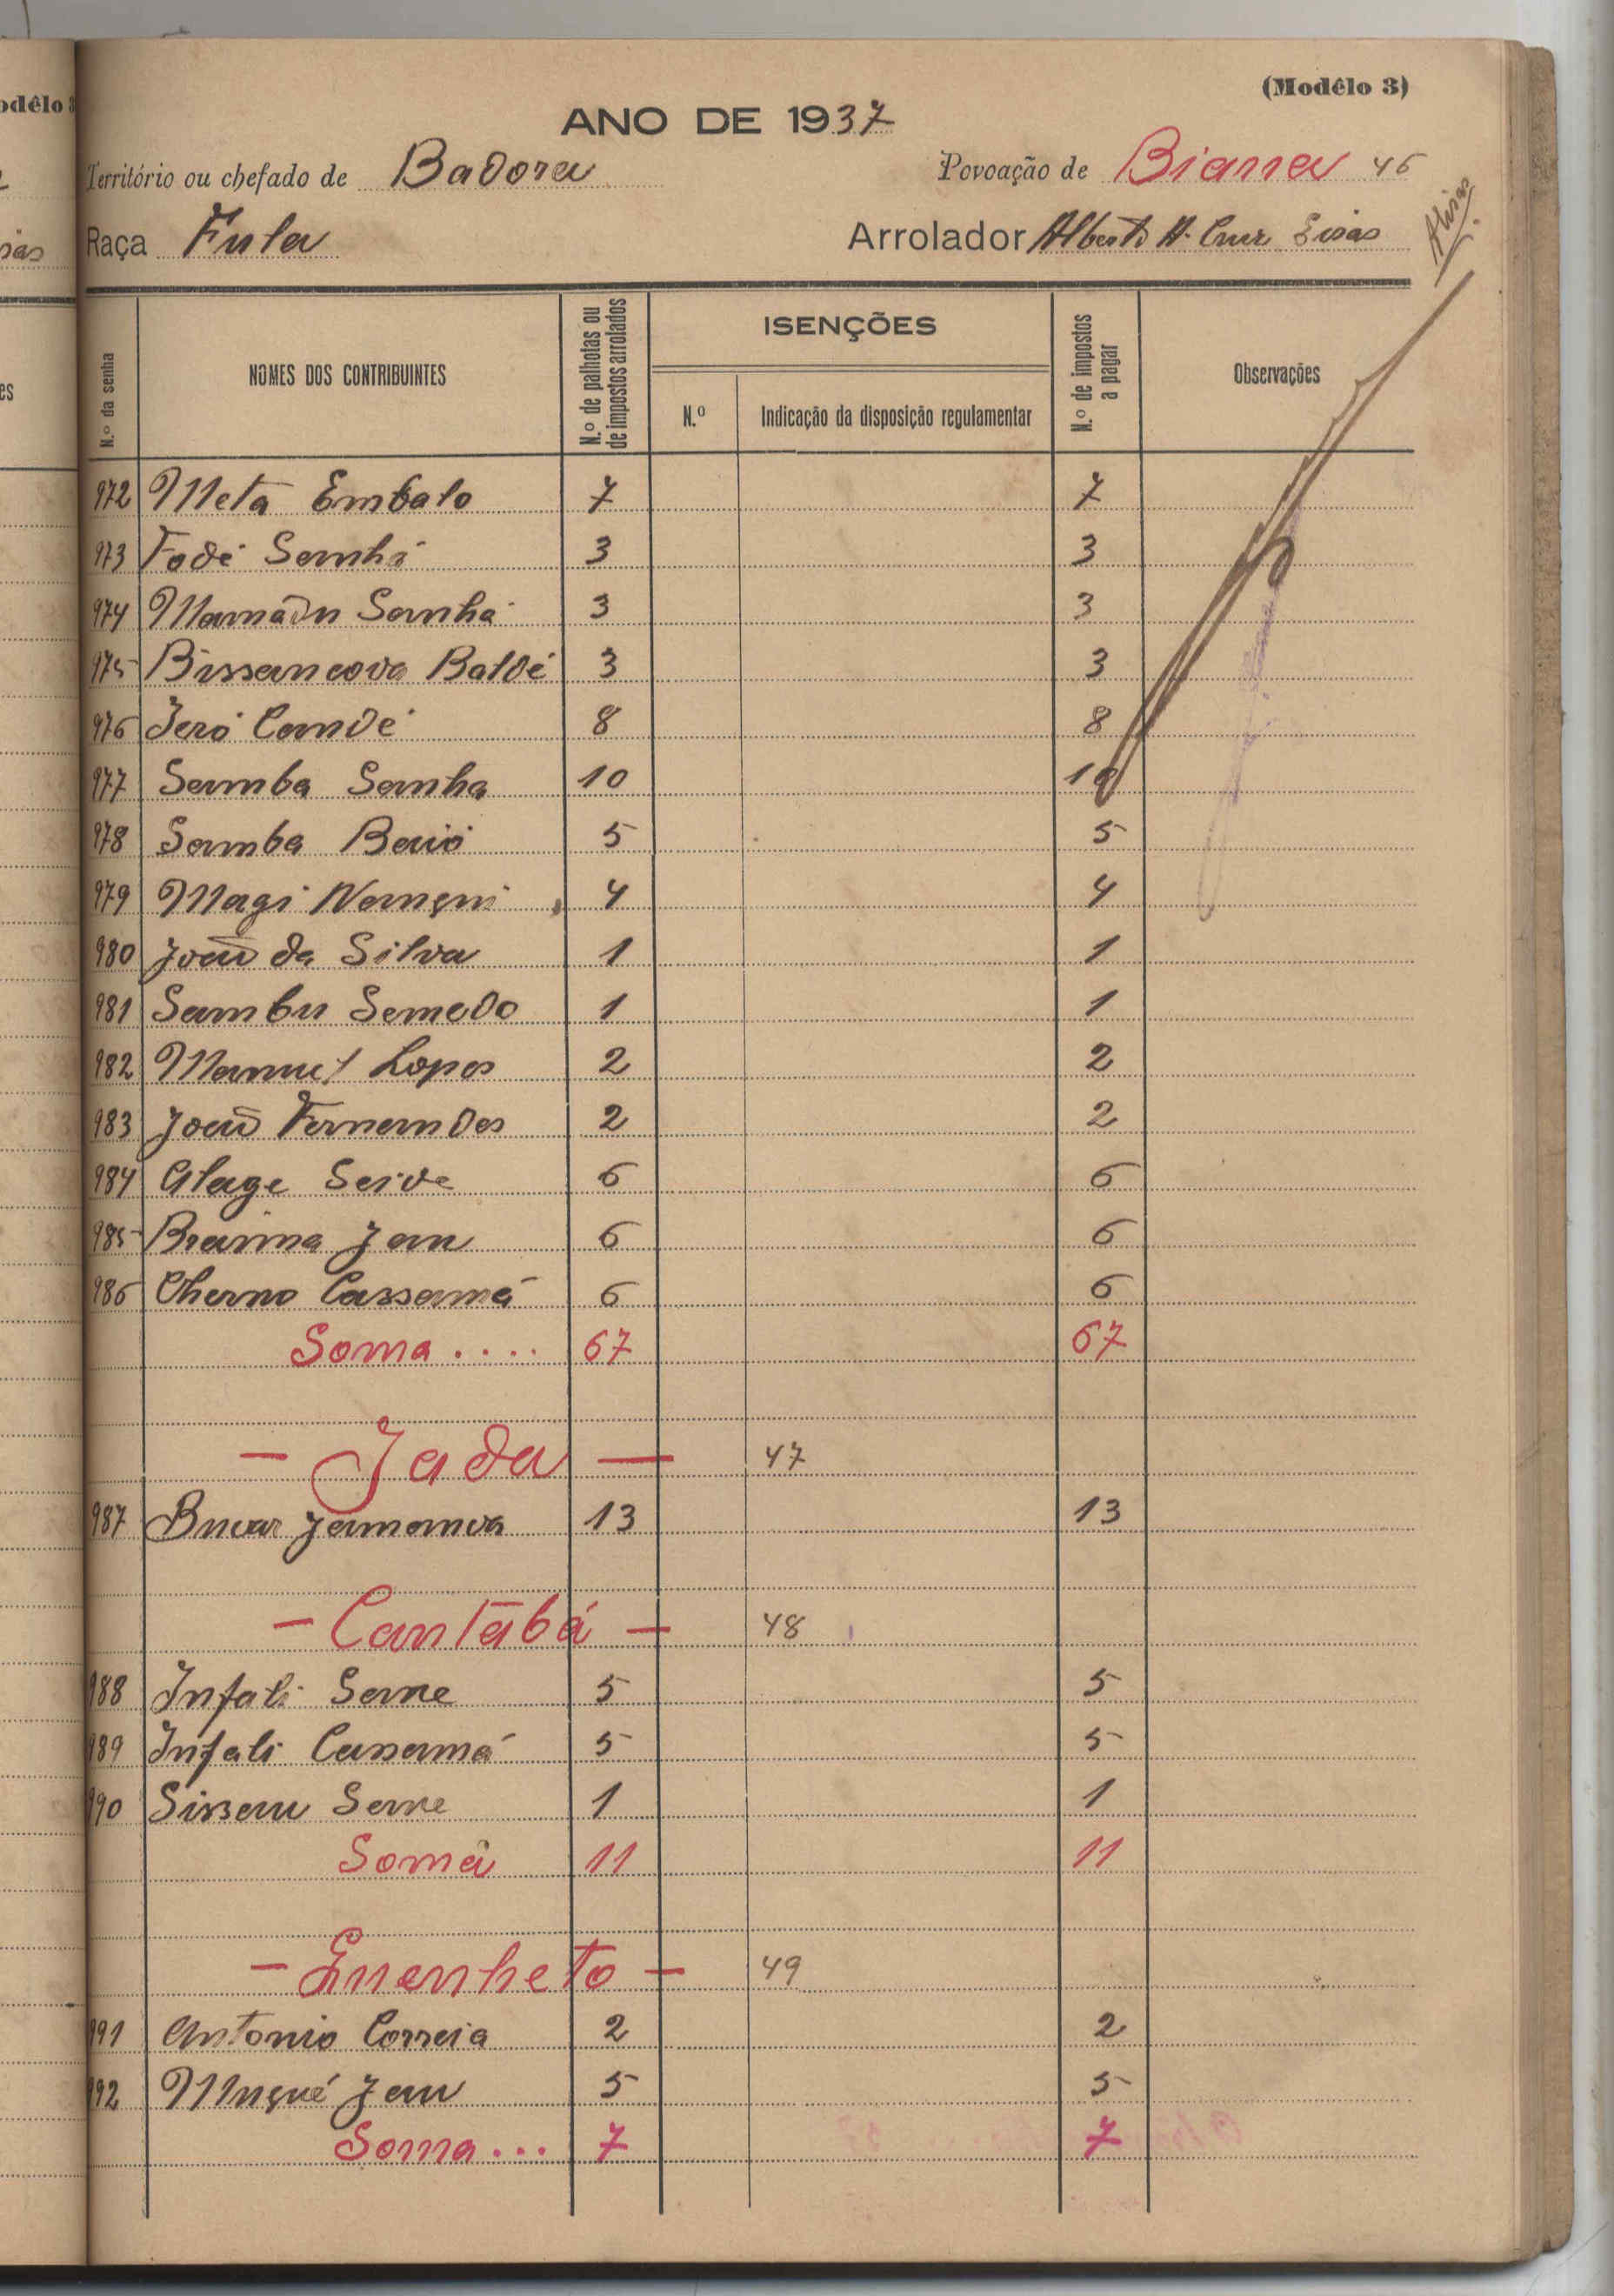 (Modêlo 3)
ANO DE 1937
Território ou chefado de Badora Povoação de Biana 46
Raça Fula Arrolador Alberto A. Cruz
N.º da senha NOMES DOS CONTRIBUINTES N.º de palhotas ou de impostos arrolados ISENÇÕES N.º Indicação da disposição regulamentar N.º de impostos a pagar Observações
972 Meta Embalo 7 7
973 Fodé Sanhá 3 3
974 Mamadu Sanhá 3 3
975 Bissancova Baldé 3 3
976 Jeró Candé 8 8
977 Samba Sanha 10 10
978 Samba Baió 5 5
979 Magi 4 4
980 João da Silva 1 1
981 Sambu Semedo 1 1
982 Manuel Lopes 2 2
983 João Fernandes 2 2
984 Alage Seide 6 6
985 Braima Jau 6 6
986 Cherno Cassamá 6 6
Soma .... 67 67
- Jada - 47
987 Bucar Jamanca 13 13
- Cantabá - 48
988 Infali Sane 5 5
989 Infali Cassamá 5 5
990 Sissau Sane 1 1
Soma 11 11
- Enenheto - 49
991 Antonio Correia 2 2
992 Muçué Jau 5 5
Soma ... 7 7